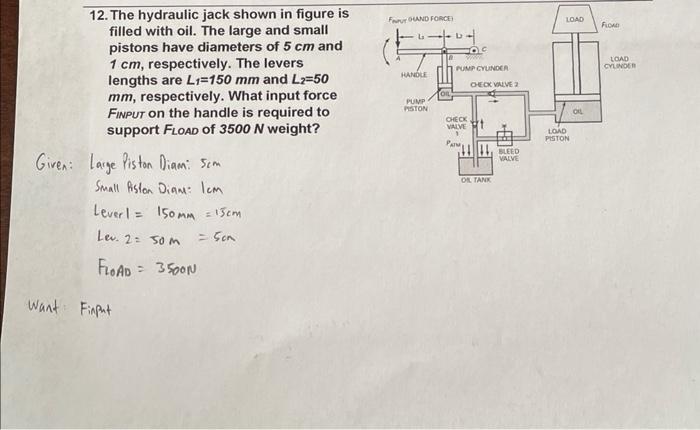 12. The hydraulic jack shown in figure is
filled with oil. The large and small
pistons have diameters of 5 cm and
1 cm, respectively. The levers
lengths are L1=150 mm and L2=50
mm, respectively. What input force
FINPUT on the handle is required to
support FLOAD of 3500 N weight?
FINPUT (HAND FORCE)
L1
L2
A
B
C
HANDLE
PUMP CYLINDER
OIL
CHECK VALVE 2
PUMP
PISTON
CHECK
VALVE
1
PATM
BLEED
VALVE
OIL TANK
LOAD
FLOAD
LOAD
CYLINDER
OIL
LOAD
PISTON
Given: Large Piston Diam: 5cm
Small Piston Diam: 1cm
Lever 1 = 150mm = 15cm
Lev. 2 = 50 m = 5cm
FLOAD = 3500N
Want: Finput